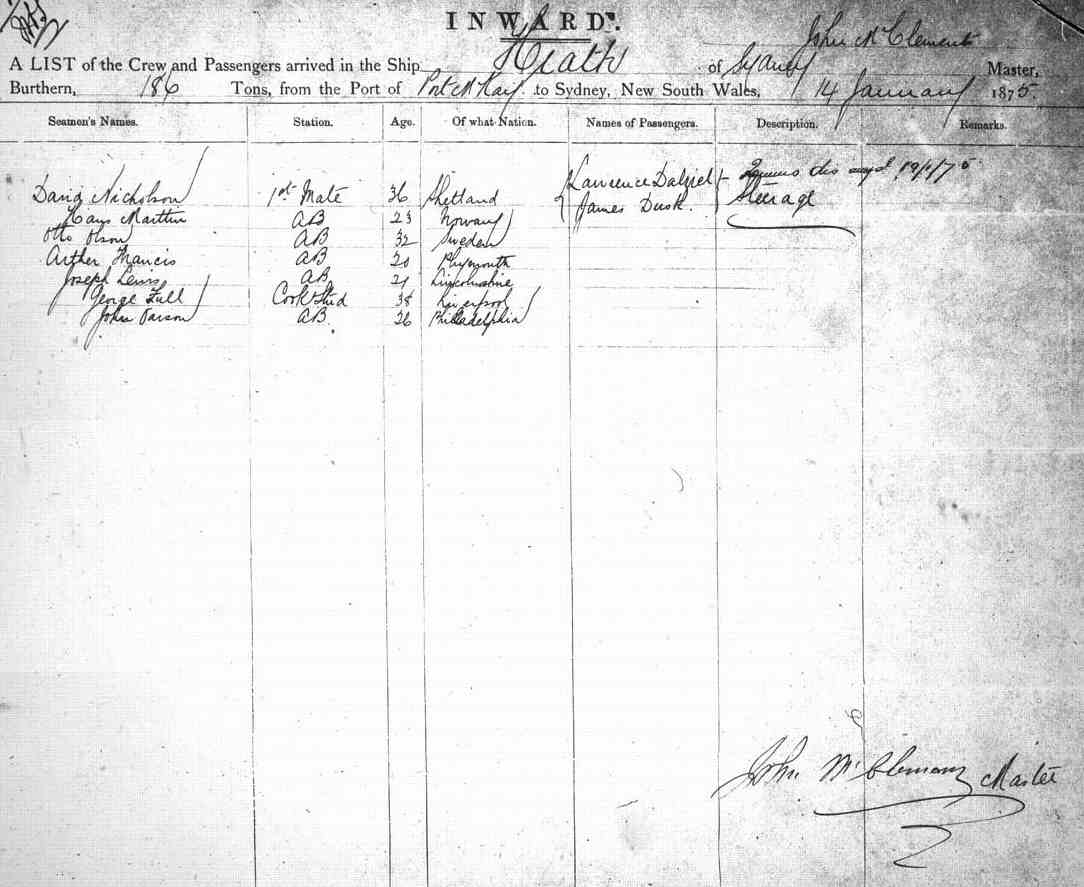 INWARDS.
John McClement
A LIST of the Crew and Passengers arrived in the Ship Heath of Sydney Master,
Burthern, 186 Tons, from the Port of Port McKay to Sydney, New South Wales, 14 January 1875.
Seamen's Names. Station. Age. Of what Nation. Names of Passengers. Description. Remarks.
David Nicholson 1st Mate 36 Shetland Lawrence Dalziel 19/1/75
Hans Martin AB 23 Norway James Dusk. Steerage
Otto Olson AB 32 Sweden
Arther Francis AB 20 Plymouth
Joseph Lewis AB 21 Lincolnshire
George Full Cook & Stud 38 Liverpool
John Parson AB 26 Philadelphia
John McClement Master